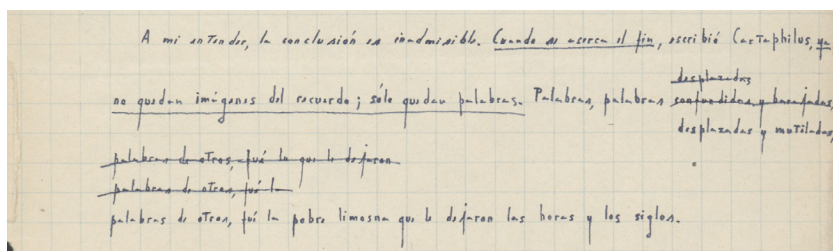 A mi entender, la conclusión es inadmisible. Cuando se acerca el fin, escribió Cartaphilus, ya
desplazadas
no quedan imágenes del recuerdo; sólo quedan palabras. Palabras, palabras confundidas y barajadas,
desplazadas y mutiladas,
palabras de otros, fué la que le dejaron
palabras de otros, fué la
palabras de otros, fué la pobre limosna que le dejaron las horas y los siglos.